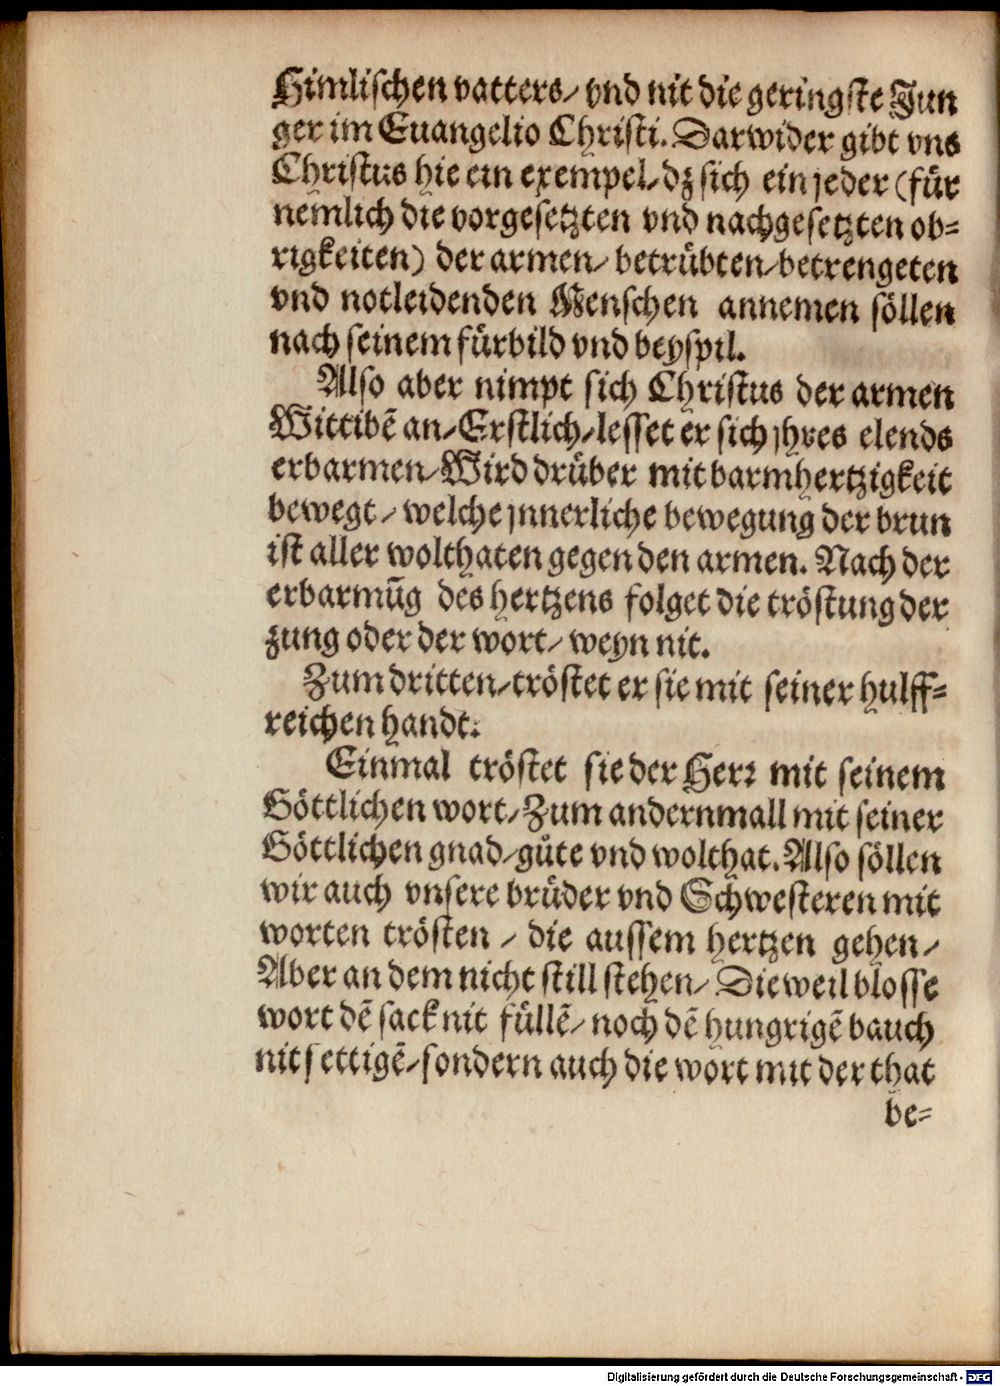 Himlischen vatters/ vnd nit die geringste Jun
ger im Euangelio Christi. Darwider gibt vns
Christus hie ein exempel/ dz sich ein jeder (für
nemlich die vorgesetzten vnd nachgesetzten ob-
rigkeiten) der armen/ betrübten/ betrengeten
vnd notleidenden Menschen annemen söllen
nach seinem fürbild vnd beyspil.
Also aber nimpt sich Christus der armen
Wittibẽ an/ Erstlich/ lesset er sich jhres elends
erbarmen/ Wird drüber mit barmhertzigkeit
bewegt/ welche jnnerliche bewegung der brun
ist aller wolthaten gegen den armen. Nach der
erbarmũg des hertzens folget die tröstung der
zung oder der wort/ weyn nit.
Zum dritten/ tröstet er sie mit seiner hulff-
reichen handt.
Einmal tröstet sie der Herr mit seinem
Göttlichen wort/ Zum andernmall mit seiner
Göttlichen gnad/ gůte vnd wolthat. Also söllen
wir auch vnsere brüder vnd Schwesteren mit
worten trösten / die aussem hertzen gehen/
Aber an dem nicht still stehen/ Dieweil blosse
wort dẽ sack nit füllẽ/ noch dẽ hungrigẽ bauch
nit settigẽ/ sondern auch die wort mit der that
be-
Digitalisierung gefördert durch die Deutsche Forschungsgemeinschaft - DFG